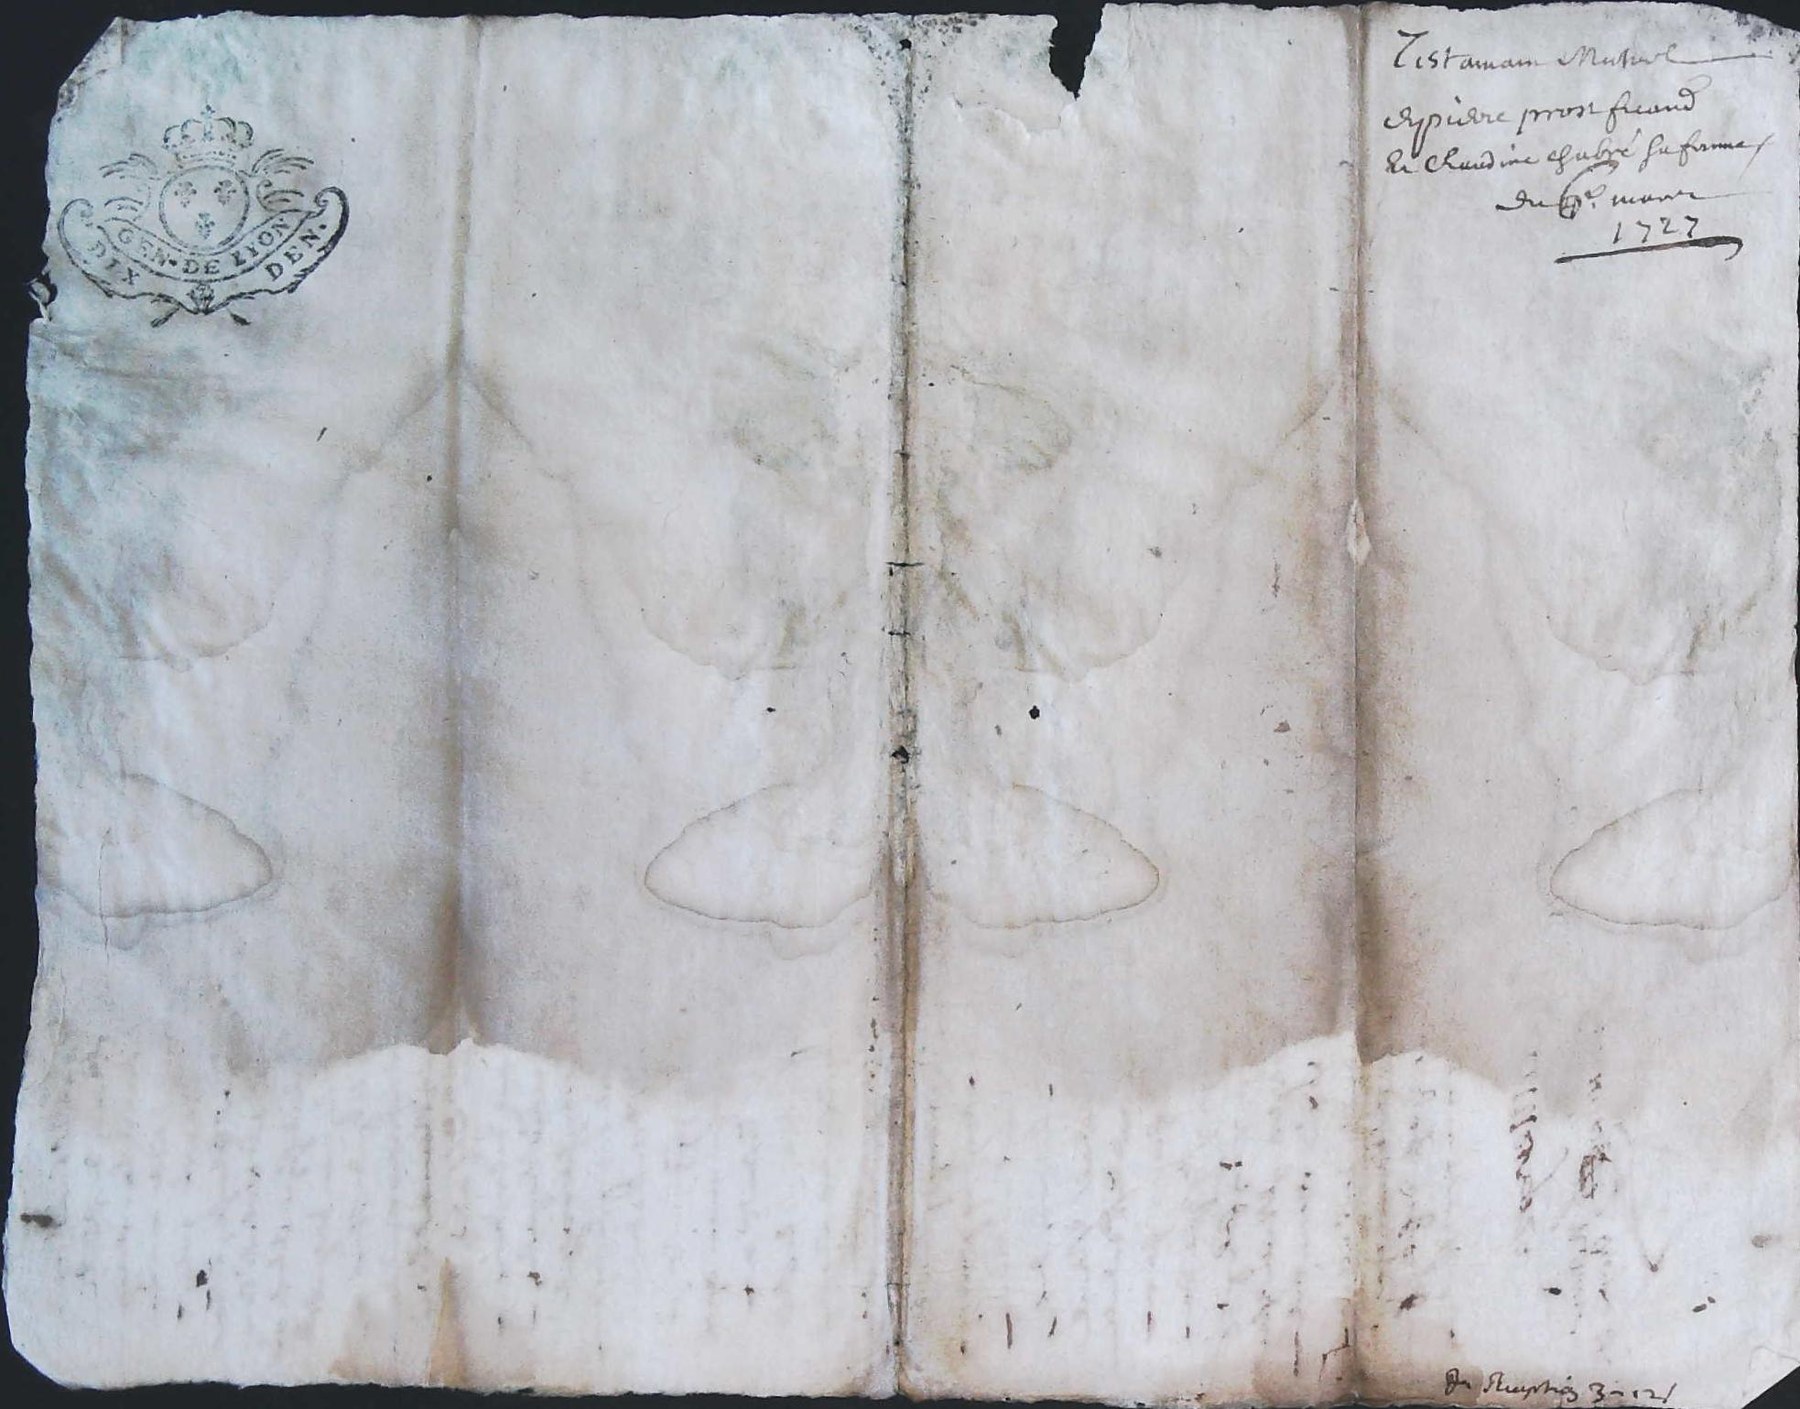 GEN. DE LYON
DIX DEN.
Testamam Mutuel
de pierre prost
et Claudine chabré sa femme
du mars
1727